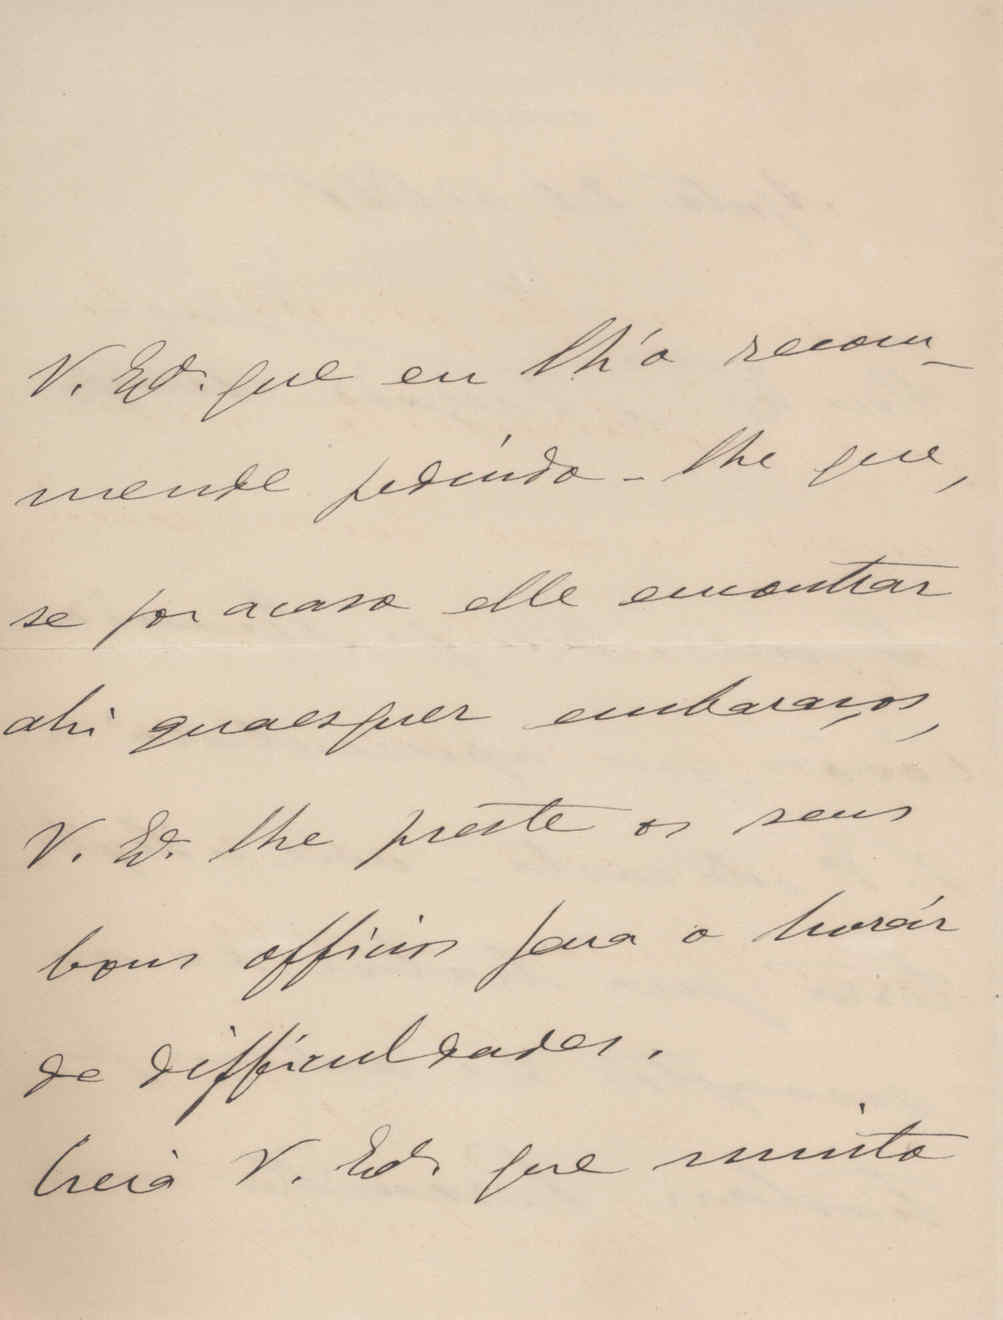 V. Exª. que eu lh'o recom-
mende pedindo-lhe que,
se por acaso elle encontrar
ahi quaesquer embaraços,
V. Exª. lhe preste os seus
bons officios para o
de difficuldades.
Creia V. Exª. que muito